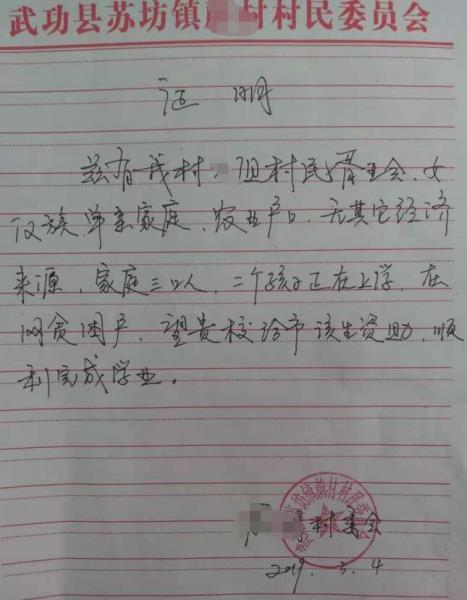 武功县苏坊镇 村村民委员会
证 明
兹有我村 组村民 会、女
汉族、单亲家庭、农业户口、无其它经济
来源，家庭三口人，二个孩子正在上学，在
网贫困户，望贵校给予该生资助，顺
利完成学业。
村委会
2019. 3. 4